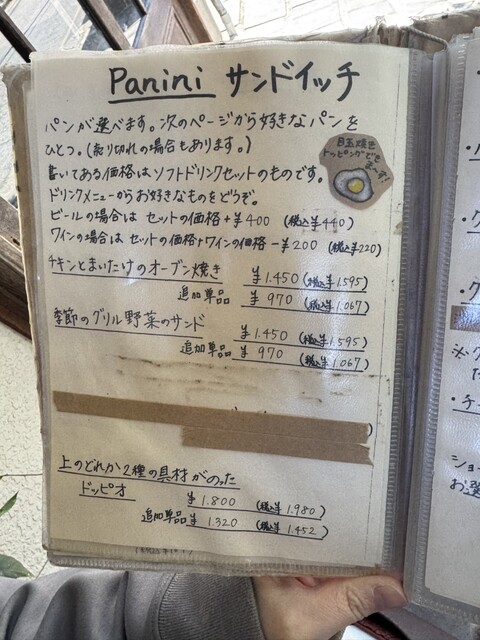 Panini サンドイッチ
パンが選べます。次のページから好きなパンを
ひとつ。(売り切れの場合もあります。)
目玉焼き
トッピングできま〜す!
書いてある価格はソフトドリンクセットのものです。
ドリンクメニューからお好きなものをどうぞ。
ビールの場合は セットの価格+¥400 (税込¥440)
ワインの場合は セットの価格+ワインの価格-¥200 (税込¥220)
チキンとまいたけのオーブン焼き
¥1.450 (税込¥1.595)
追加単品 ¥970 (税込¥1.067)
季節のグリル野菜のサンド
¥1.450 (税込¥1.595)
追加単品 ¥970 (税込¥1.067)
上のどれか2種の具材がのった
ドッピオ
¥1.800 (税込¥1.980)
追加単品 ¥1.320 (税込¥1.452)